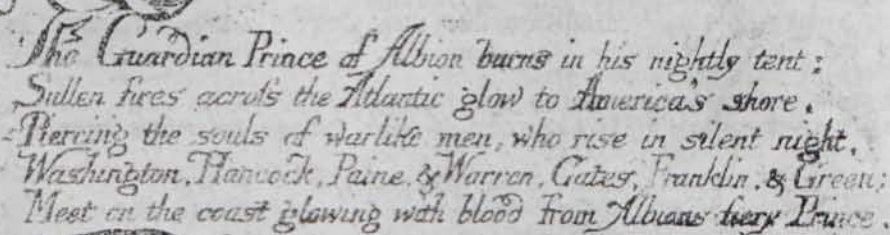 The Guardian Prince of Albion burns in his nightly tent:
Sullen fires across the Atlantic glow to America's shore.
Piercing the souls of warlike men, who rise in silent night,
Washington, Hancock, Paine, & Warren, Gates, Franklin, & Green;
Meet on the coast glowing with blood from Albions fiery Prince.